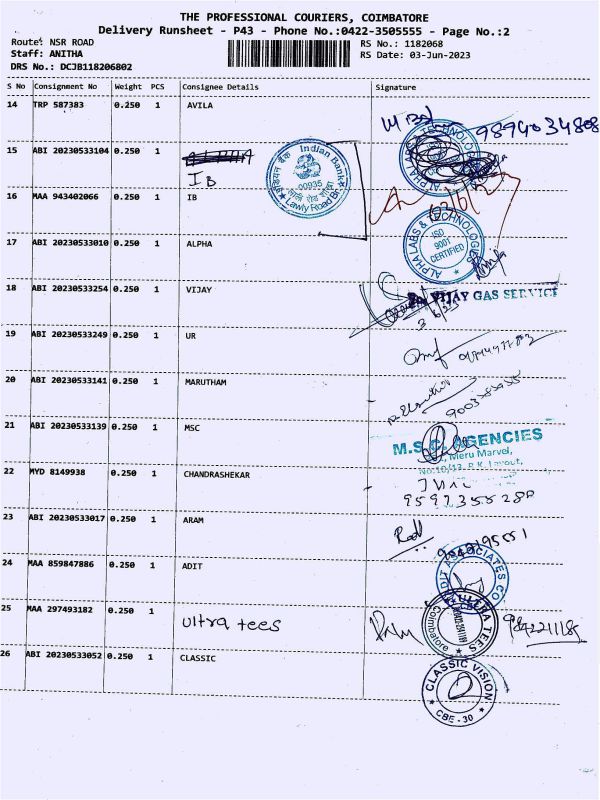 THE PROFESSIONAL COURIERS, COIMBATORE
Delivery Runsheet - P43 - Phone No.:0422-3505555 - Page No.:2
Route: NSR ROAD
RS No.: 1182068
Staff: ANITHA
RS Date: 03-Jun-2023
DRS No.: DCJB118206802
S No Consignment No Weight PCS Consignee Details Signature
14 TRP 587383 0.250 1 AVILA
9894034808
15 ABI 20230533104 0.250 1
IB
इंडियन बैंक Indian Bank
00935
Lawly Road Bran
16 MAA 943402066 0.250 1 IB
17 ABI 20230533010 0.250 1 ALPHA
ALPHA LABS & TECHNOLOGIES
ISO
9001
CERTIFIED
18 ABI 20230533254 0.250 1 VIJAY
VIJAY GAS SERVICE
19 ABI 20230533249 0.250 1 UR
20 ABI 20230533141 0.250 1 MARUTHAM
21 ABI 20230533139 0.250 1 MSC
M.S.C. AGENCIES
Meru Marvel,
No:10/13, P.K. Layout,
22 MYD 8149938 0.250 1 CHANDRASHEKAR
23 ABI 20230533017 0.250 1 ARAM
24 MAA 859847886 0.250 1 ADIT
ADIT ASSOCIATES
25 MAA 297493182 0.250 1 Ultra tees
ULTRA TEES
Coimbatore
26 ABI 20230533052 0.250 1 CLASSIC
CLASSIC VISION
CBE - 30